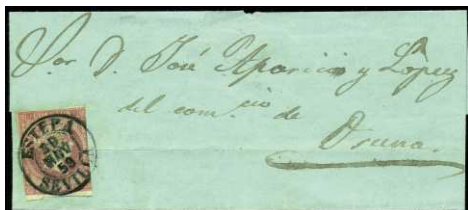 Sor D. José Aparicio y López
del com.cio de
Osuna.
ESTEPA
NOV
59
SEVILLA